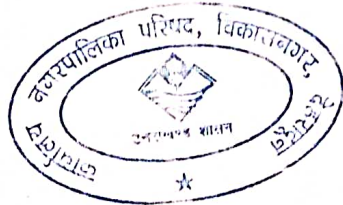 कार्यालय नगरपालिका परिषद, विकासनगर, देहरादून
उत्तराखण्ड शासन